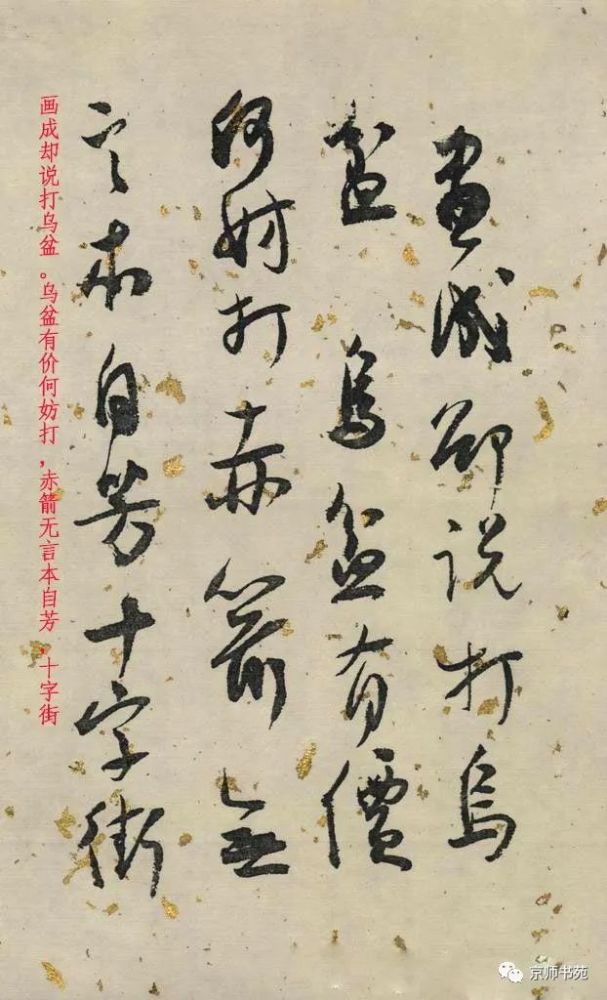 畫成卻說打烏
盆烏盆有價
何妨打赤箭無
言本自芳十字街
画成却说打乌盆。乌盆有价何妨打,赤箭无言本自芳,十字街
京师书苑